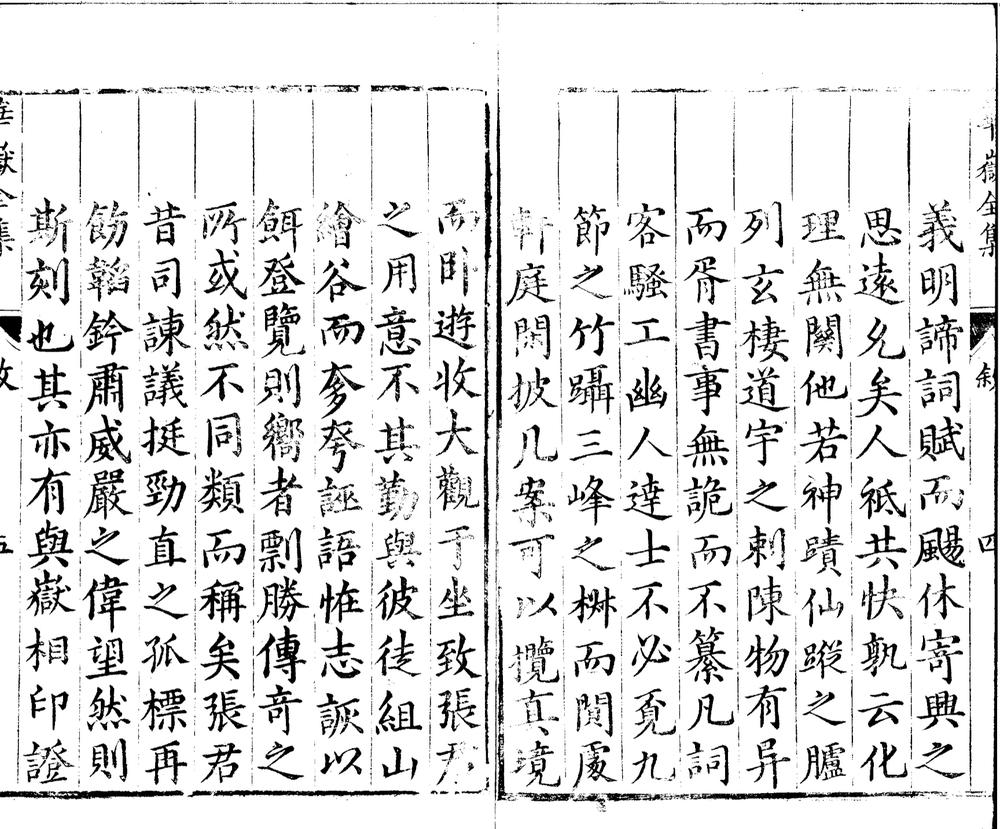 華嶽全集
敘
四
義明諦詞賦而颺休寄興之
思遠允矣人祇共快孰云化
理無關他若神蹟仙蹤之臚
列玄棲道宇之剌陳物有异
而胥書事無詭而不纂凡詞
客騷工幽人達士不必覓九
節之竹躡三峰之樹而閲處
軒庭閒披几案可以攬真境
而卧遊收大觀于坐致張君
之用意不其勤與彼徒組山
繪谷而奓夸誣語恠志詼以
餌登覽則嚮者剽勝傳竒之
所或然不同類而稱矣張君
昔司諫議挺勁直之孤標再
飭韜鈐肅威嚴之偉望然則
斯刻也其亦有與嶽相印證
華嶽全集
五